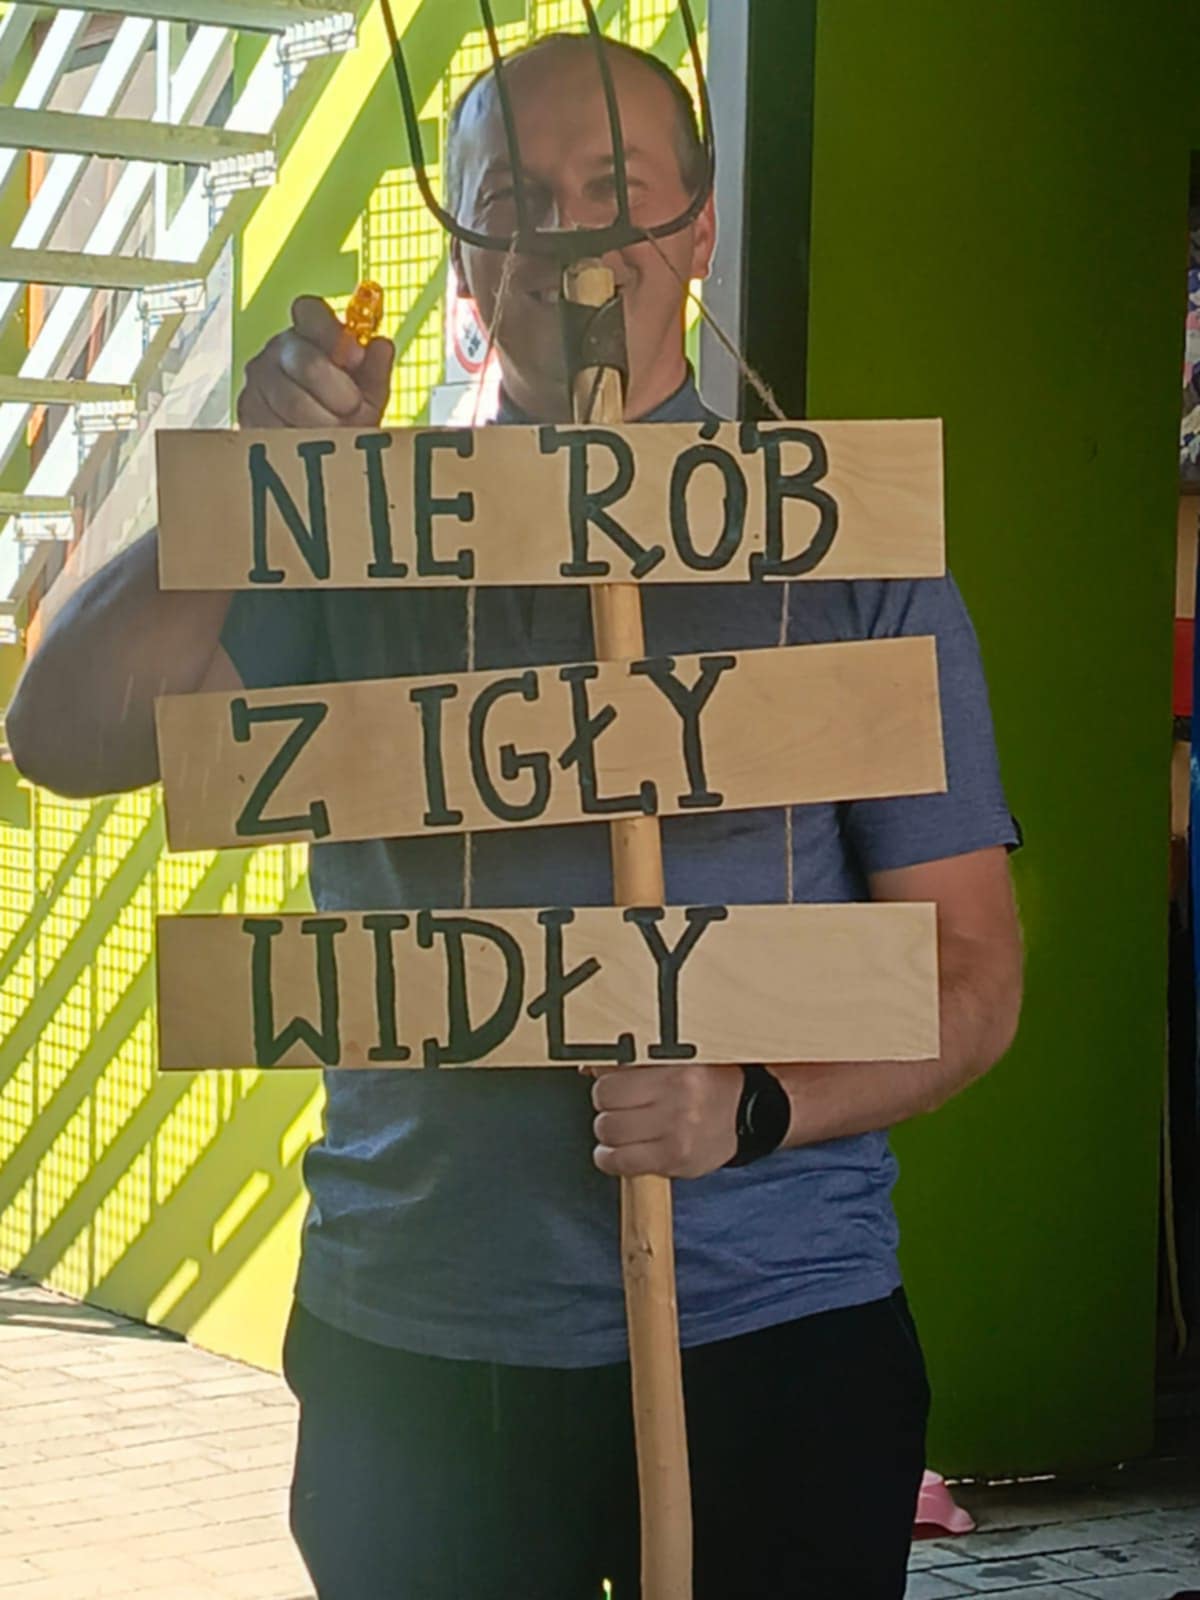 NIE RÓB
Z IGŁY
WIDŁY